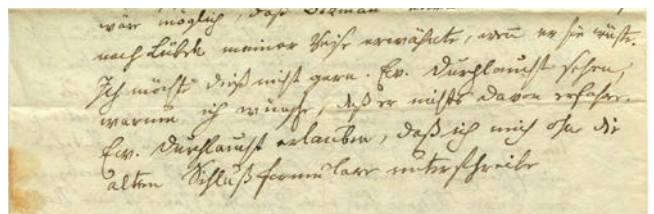 wäre möglich, daß
nach Lübek meiner Reise erwähnte, wenn er sie wüßte.
Ich möchte dieß nicht gern. Ew. Durchlaucht sehen,
warum ich wünsche, daß er nichts davon erfahre.
Ew. Durchlaucht erlauben, daß ich mich ohne die
alten Schlußformulare unterschreibe